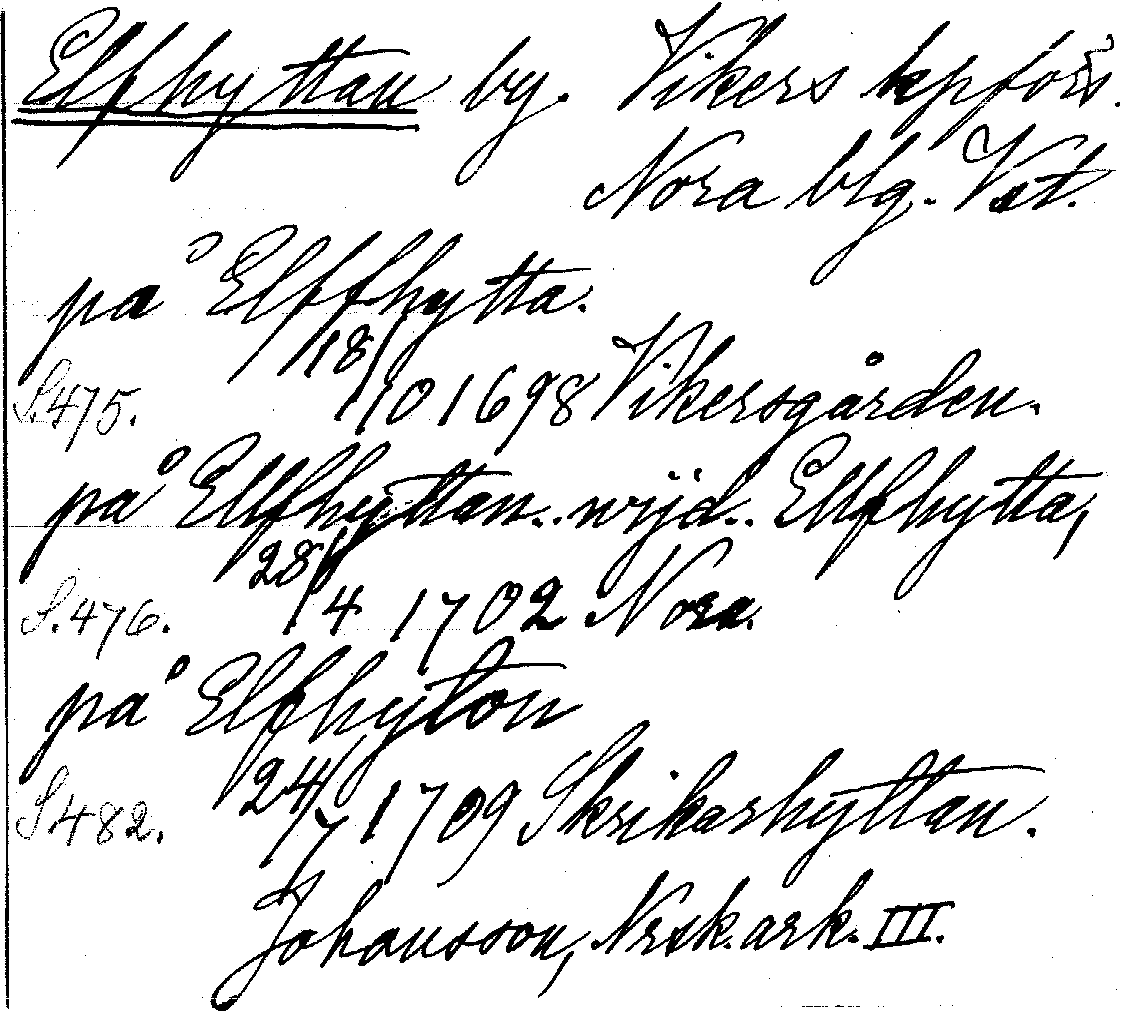 Elfhyttan by. Vikers kpförs.
Nora blg. Vst.
på Elffhytta.
S. 475. 18/10 1698 Vikersgården.
på Elffhyttan.. wijd.. Ellfhytta,
S. 476. 28/4 1702 Nora.
på Elfhyton
S. 482. 24/7 1709 Skrikarhyttan.
Johansson, Nrsk. ark. III.